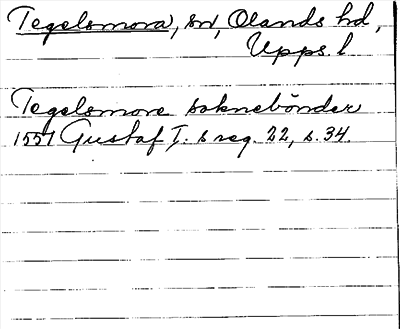 Tegelsmora, sn, Olands hd,
Upps. l
Tegelsmore soknebönder
1551 Gustaf I:s reg. 22, s. 34.